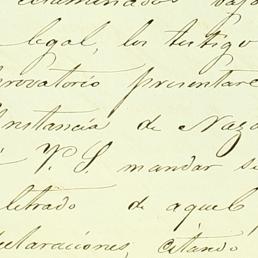 examinados bajo
legal, los testigo
probatorio presentare
Instancia de Naza
V. S. mandar se
letrado de aquel
declaraciones, citando